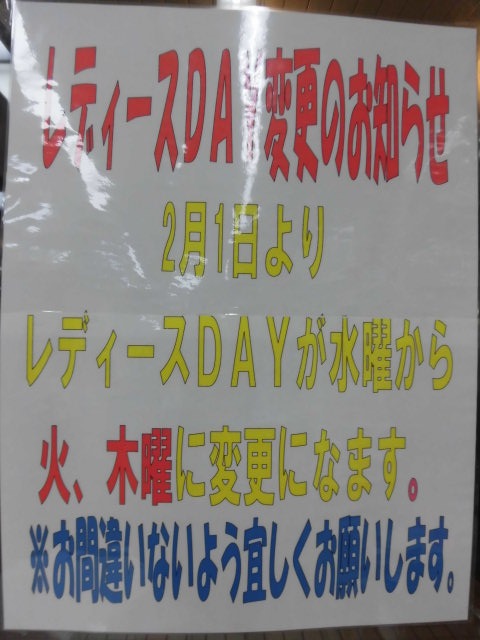 レディースDAY変更のお知らせ
2月1日より
レディースDAYが水曜から
火、木曜に変更になます。
※お間違いないよう宜しくお願いします。